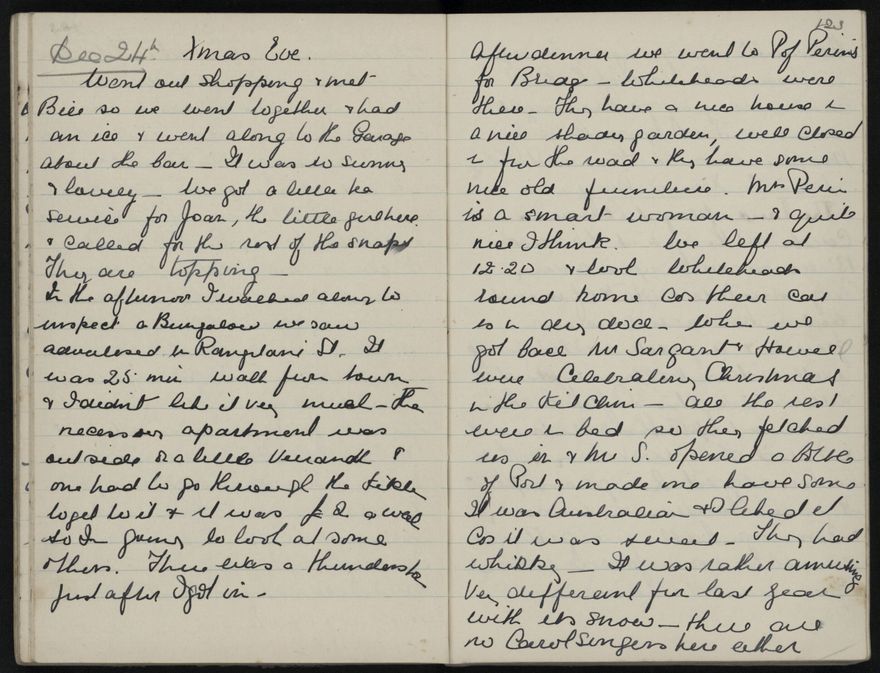 Dec 24th. Xmas Eve.
Went out shopping & met
Bice so we went together & had
an ice & went along to the Garage
about the car – It was so sunny
& lovely – We got a little tea
service for Joan, the little girl here
& called for the rest of the snaps
They are topping –
In the afternoon I walked along to
inspect a Bungalow we saw
advertised in St. It
was 25 min walk from town
& I didn't like it very much – The
necessary apartment was
outside on a little Verandah &
one had to go through the kitchen
to get to it & it was £2 a week
so I'm going to look at some
others. There was a thunderstorm
just after I got in –
123
After dinner we went to Pof Perin's
for Bridge – Whiteheads were
there – They have a nice house in
a nice shady garden, well closed
in from the road & they have some
nice old furniture. Mrs Perin
is a smart woman – & quite
nice I think. We left at
12.20 & took Whiteheads
round home cos their car
is in dry dock – When we
got back Mr Sargant & Howell
were Celebrating Christmas
in the Kitchen – all the rest
were in bed so they fetched
us in & Mr S. opened a bottle
of Port & made me have some
It was Australian & I liked it
cos it was sweet – They had
whisky – It was rather amusing
Very different from last year
with its snow – there are
no Carol Singers here either